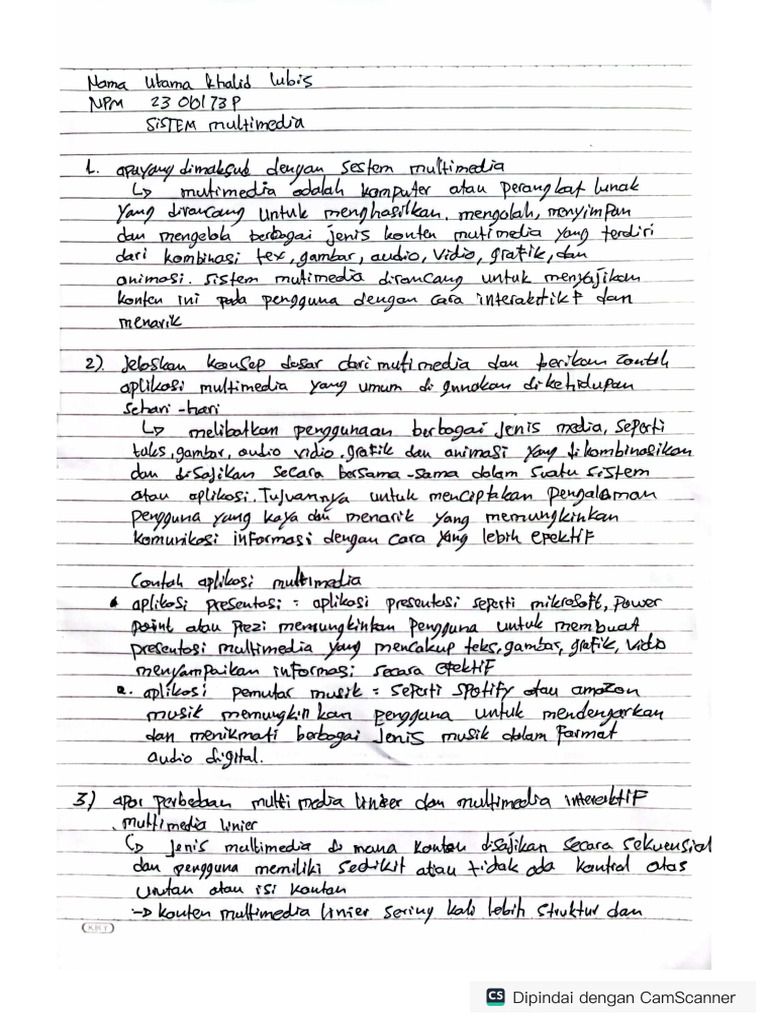 Nama Utama Khalid Lubis
NPM 23 06173P
SISTEM multimedia
1. apayang dimaksub dengan sestem multimedia
↳ mutimedia adalah komputer atau perangkat lunak
yang dirancang untuk menghasilkan, mengolah, menyimpan
dan mengelola berbagai jenis konten mutimedia yang terdiri
dari kombinasi tex, gambar, audio, vidio, grafik, dan
animasi. sistem mutimedia dirancang untuk menyajikan
konten ini pada pengguna dengan cara interaktikf dan
menarik
2). Jelaskan konsep dasar dari mutimedia dan berikan contoh
aplikasi multimedia yang umum di gunakan di kehidupan
sehari-hari
↳ melibatkan penggunaan berbagai jenis media, seperti
taks, gambar, audio vidio, grafik dan animasi yang di kombinasikan
dan disajikan secara bersama-sama dalam suatu sistem
atau aplikasi. Tujuannya untuk menciptakan pengalaman
pengguna yang kaya dan menarik yang memungkinkan
komunikasi informasi dengan cara yang lebih efektif
Contoh aplikasi multimedia
aplikasi presentasi = aplikasi presentasi seperti mikrosoft, power
point atau prezi memungkinkan pengguna untuk membuat
presentasi multimedia yang mencakup teks, gambar, grafik, vidio
menyampaikan informasi secara efektif
2. aplikasi pemutar musik = seperti spotify atau amazon
musik memungkinkan pengguna untuk mendengarkan
dan menikmati berbagai jenis musik dalam format
audio digital.
3) apa perbedaan multi media linier dan multimedia interaktif
. multimedia linier
↳ jenis multimedia di mana konten disajikan secara sekuensial
dan pengguna memiliki sedikit atau tidak ada kontrol atas
urutan atau isi kontan
-> konten multimedia linier sering kali lebih struktur dan
KIKY
CS Dipindai dengan CamScanner